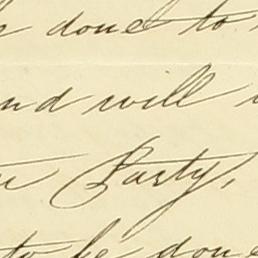 done to
and will
Party,
to be done